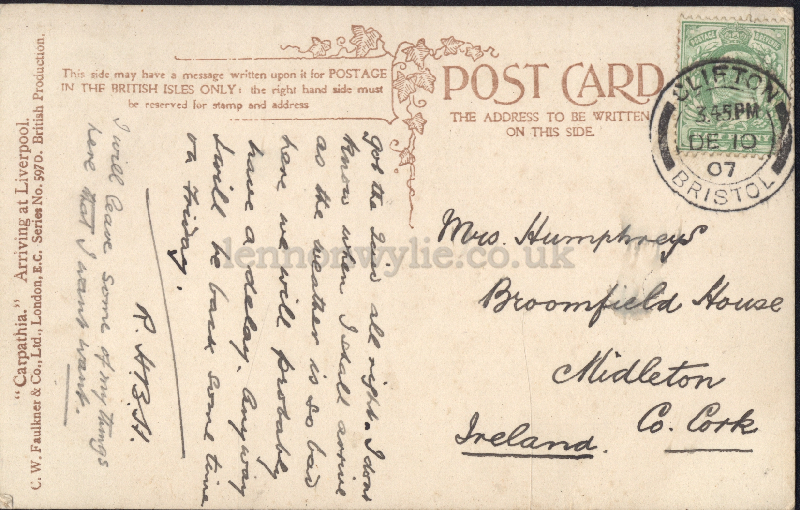 "Carpathia." Arriving at Liverpool.
C. W. Faulkner & Co., Ltd., London, E.C. Series No. 597D. British Production.
This side may have a message written upon it for POSTAGE
IN THE BRITISH ISLES ONLY: the right hand side must
be reserved for stamp and address
POST CARD
THE ADDRESS TO BE WRITTEN
ON THIS SIDE.
POSTAGE REVENUE
CLIFTON
3.45 PM
DE 10
07
BRISTOL
Got the all right. I dont
know when I shall arrive
as the weather is so bad
here we will probably
have a delay. Anyway
I will be back some time
on Friday.
R. H. B. H.
I will leave some of my things
here that I wont want.
Mrs. Humphreys
Broomfield House
Midleton
Co. Cork
Ireland.
lennonwylie.co.uk